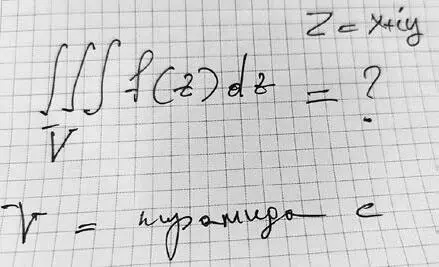 z = x+iy
∭_V f(z) dz = ?
V = пирамида с